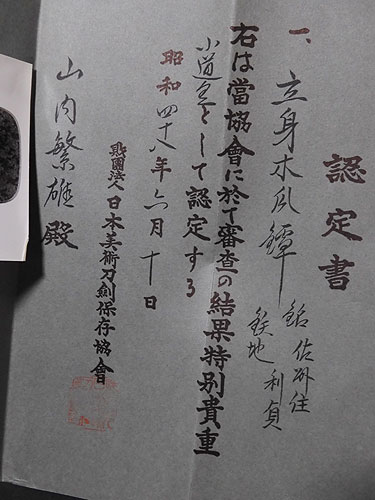 認定書
一、立身木瓜鐔 銘 佐州住利貞
鉄地
右は當協會に於て審査の結果特別貴重
小道具として認定する
昭和四十八年六月十日
財團法人日本美術刀劍保存協會
山内繁雄殿